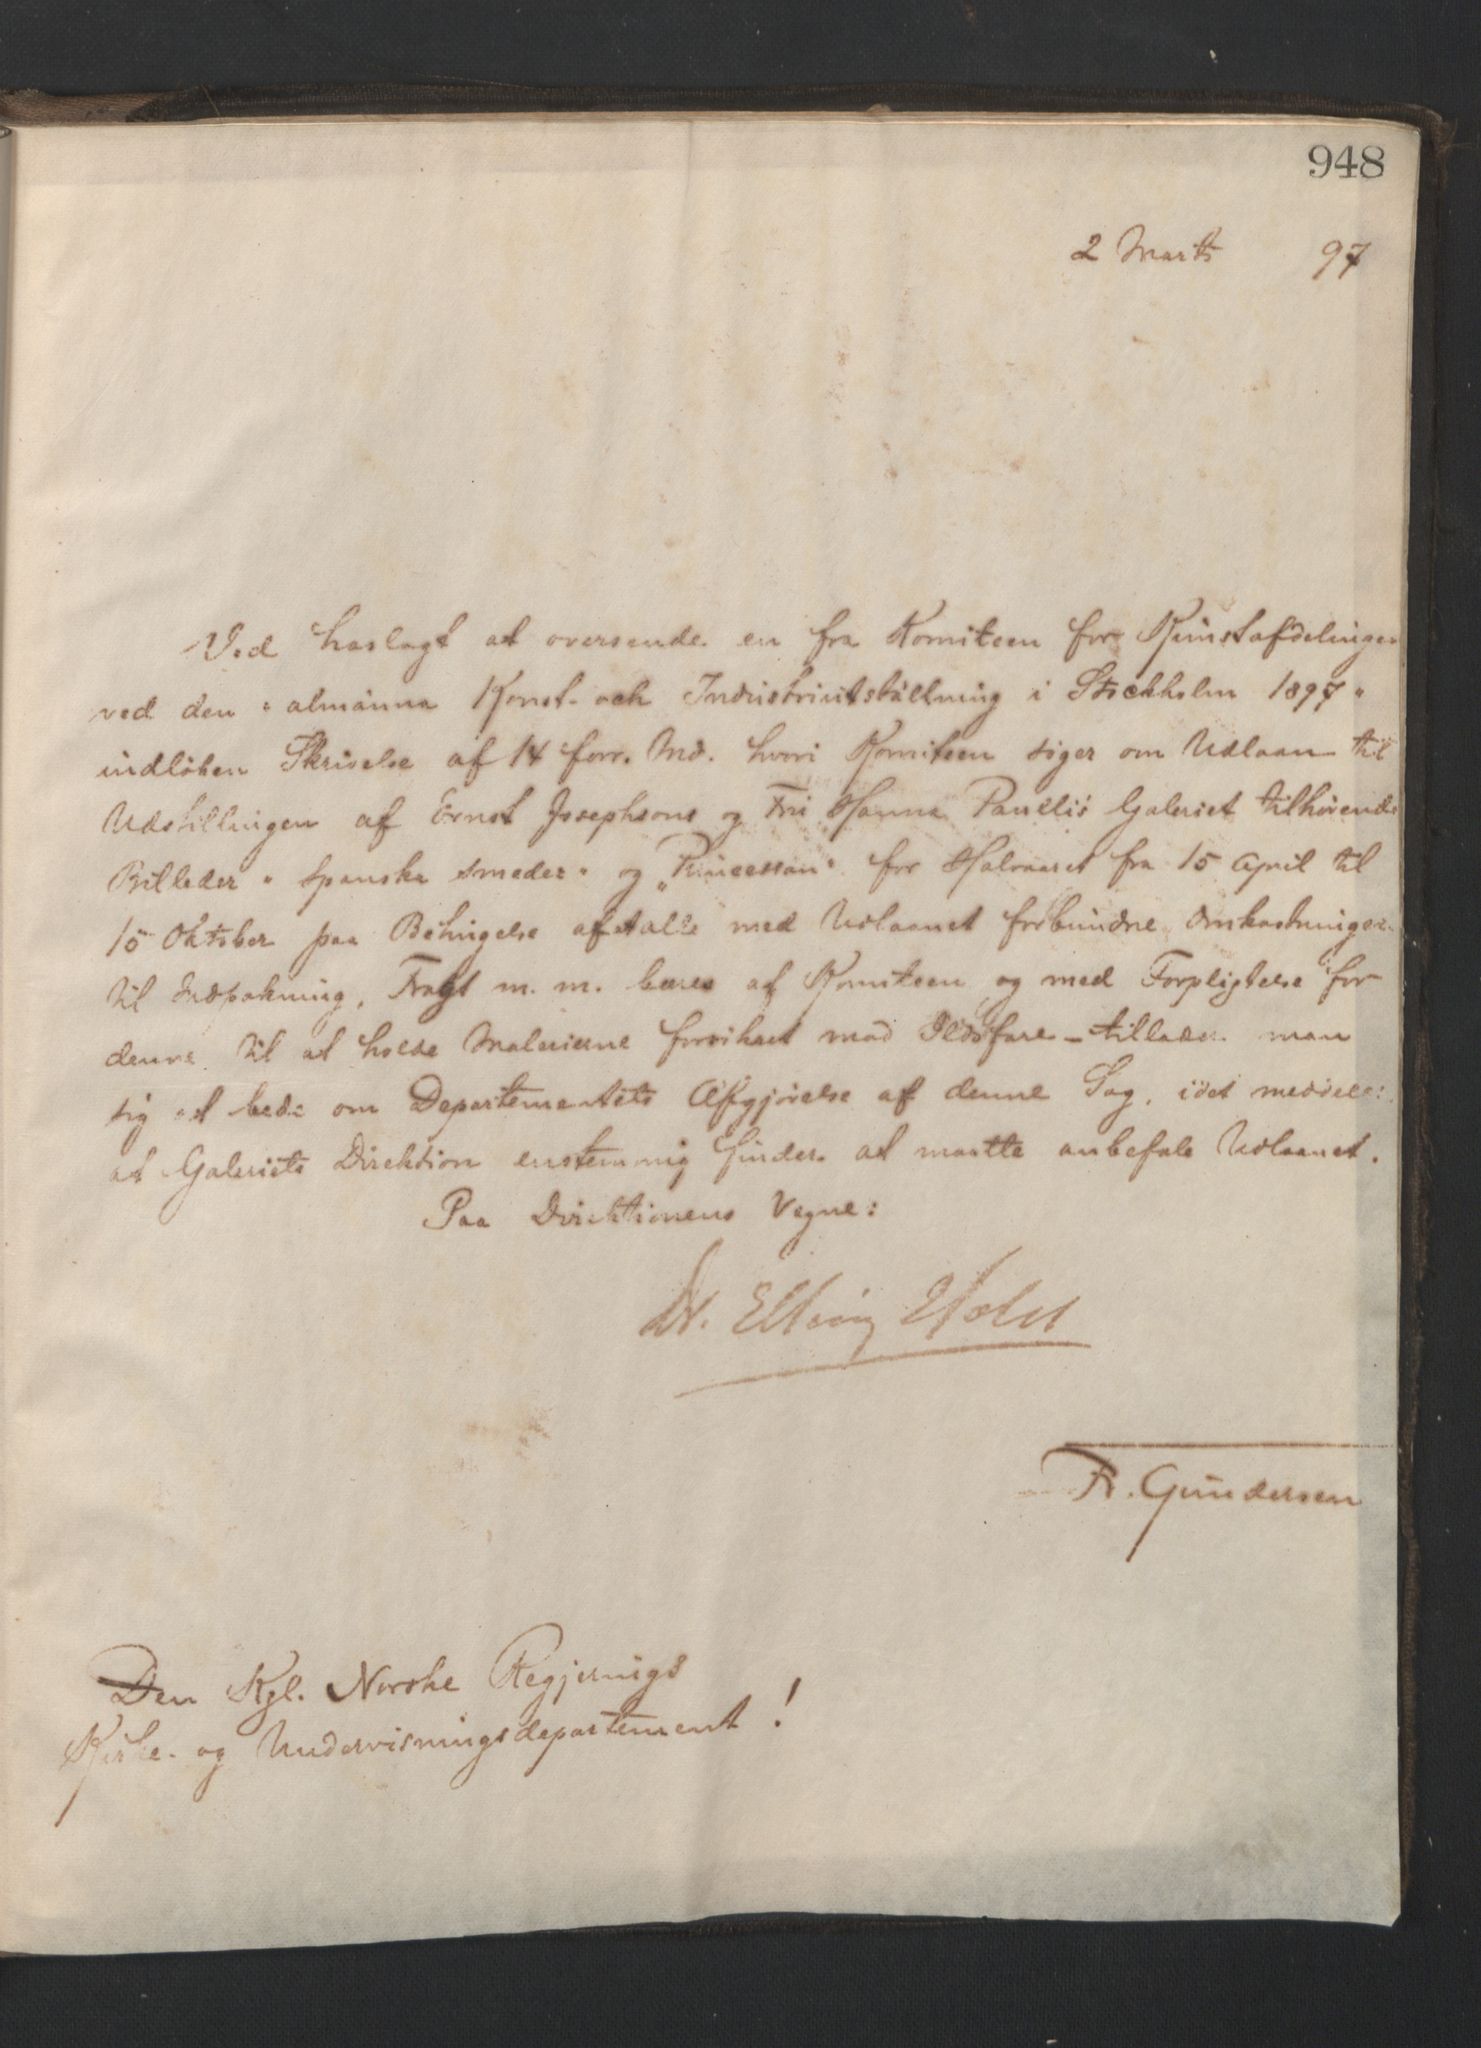 948
2 Marts 97
Ved hoslagt at oversende en fra Komiteen for Kunstafdelingen
ved den "almänna Konst- och Industriutställning i Stockholm 1897"
indløben Skrivelse af 14 forr. Md. hvori Komiteen søger om Udlaan til
Udstillingen af Ernst Josephsons og Fru Hanna Paulis Galeriet tilhørende
Billeder "Spanske Smeder" og "Princessan" for Halvaaret fra 15 April til
15 Oktober paa Betingelse af at alle med Udlaanet forbundne Omkostninger
til Indpakning, Fragt m. m. bæres af Komiteen, og med Forpligtelse for
denne til at holde Malerierne forsikret mod Ildsfare - tillader man
sig at bede om Departementets Afgjørelse af denne Sag, idet meddeles
at Galeriets Direktion enstemmig finder at maatte anbefale Udlaanet.
Paa Direktionens Vegne:
Dr. Elling Holst
Fr. Gundersen
Den Kgl. Norske Regjerings
Kirke- og Undervisningsdepartement!